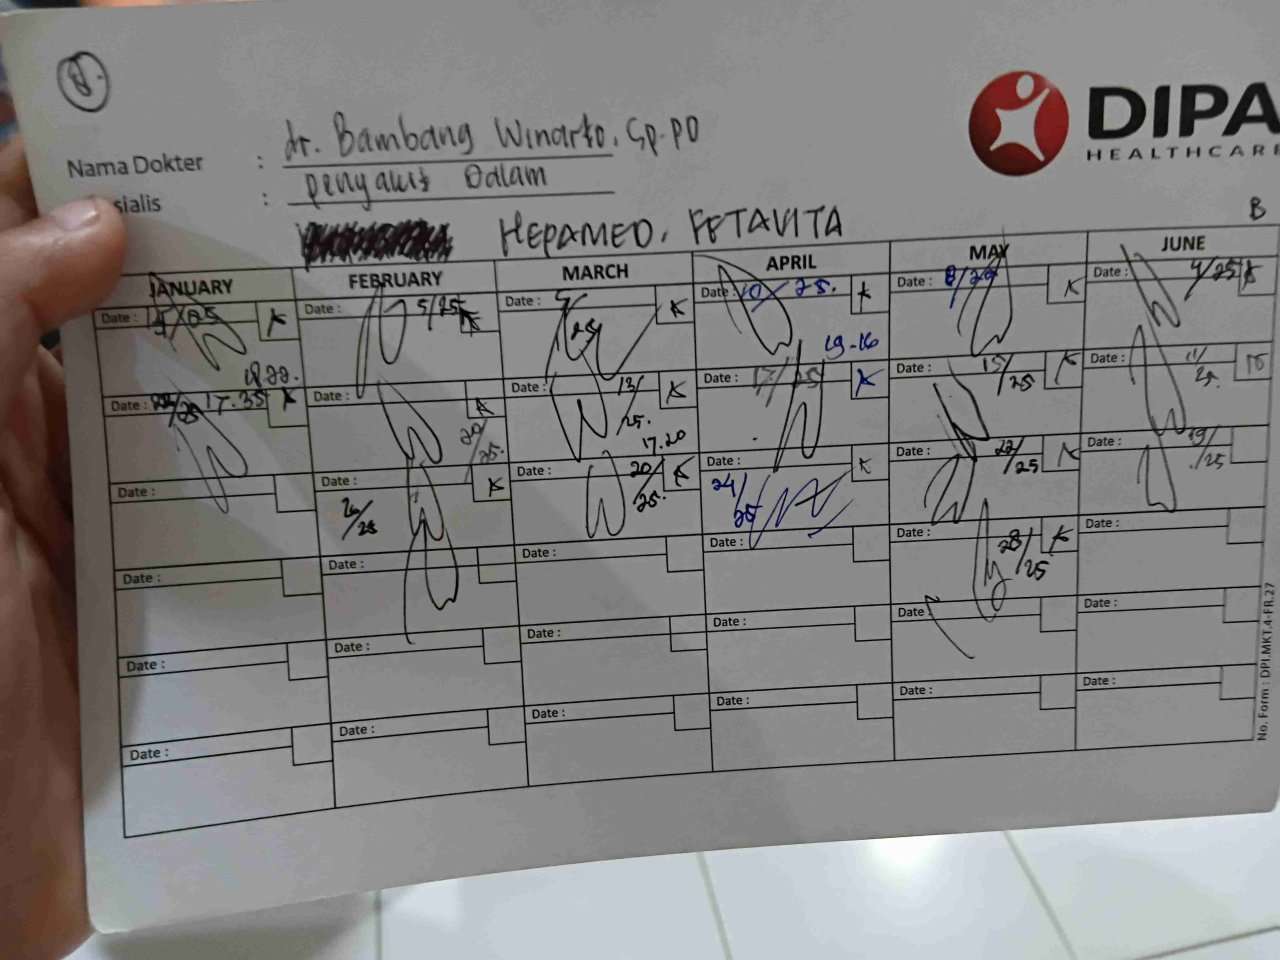 DIPA
HEALTHCARE
Nama Dokter : dr. Bambang Winarto, Sp-PD
sialis : penyakit Dalam
HEPAMED, FETAVITA
B
JANUARY FEBRUARY MARCH APRIL MAY JUNE
Date : Date : 5/25 Date : Date : 10/25. Date : 8/25 Date : 4/25
19-16
Date : 17.35 Date : 20/25. Date : 13/25. Date : 17/25 Date : 15/25 Date : 11/25.
17.20
Date : Date : 26/25 Date : 20/25. Date : 24/25 Date : 22/25 Date : 19/25
Date : Date : Date : Date : Date : 28/25 Date :
Date : Date : Date : Date : Date : Date :
Date : Date : Date : Date : Date : Date :
No. Form : DPI.MKT.4-FR.27